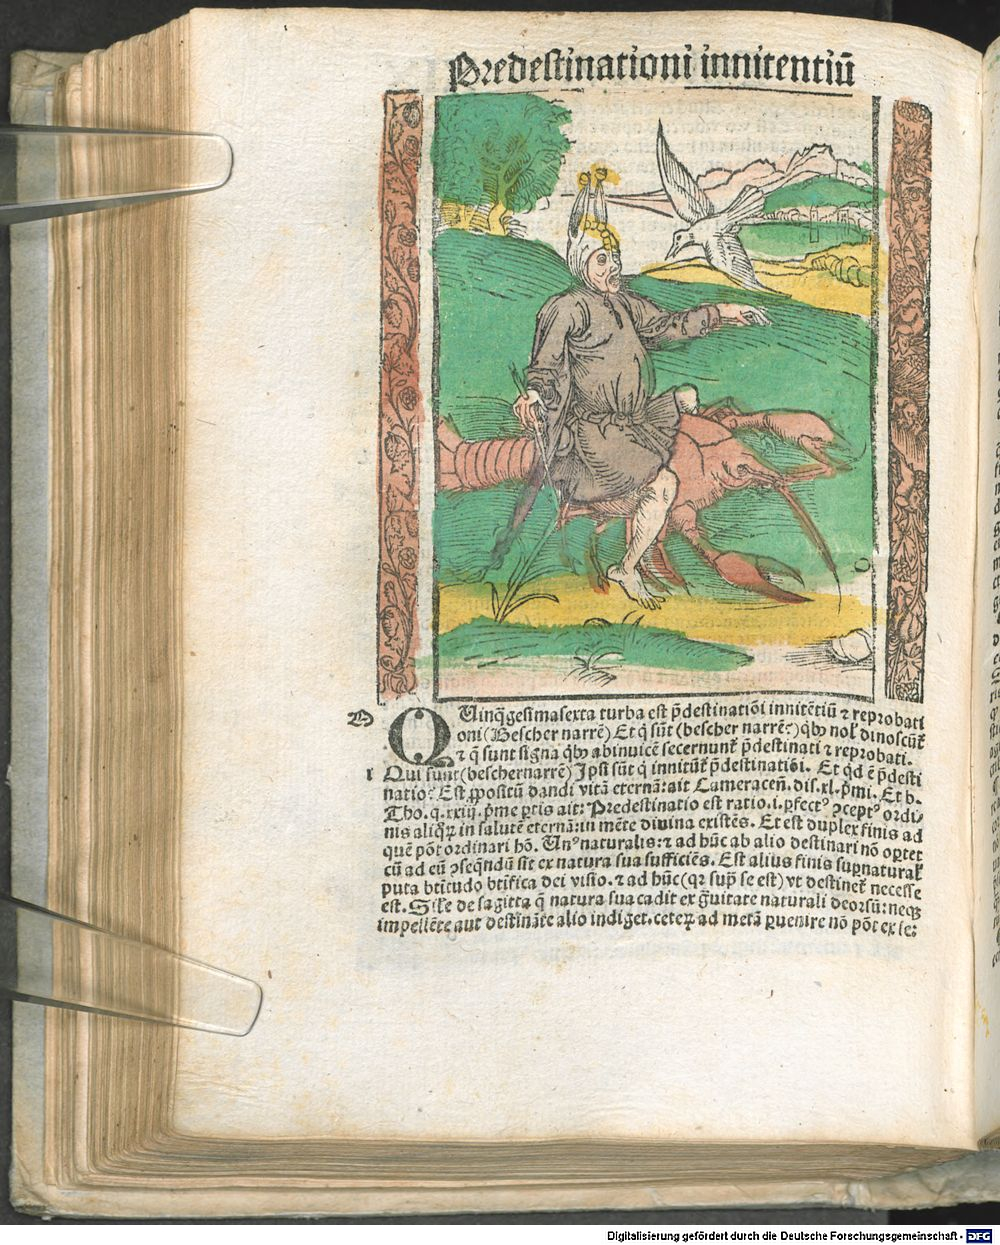 Predestinationi innitentiū
D
Quinq̄gesimasexta turba est p̄destinatiōi innitētiū ⁊ reprobati
oni (Bescher narrē) Et q̄ sūt (bescher narrē:) qb nol dinoscūt
⁊ q̄ sunt signa qb abinuicē secernunt p̄destinati ⁊ reprobati.
1 Qui sunt (beschernarrē) Ipsi sūt q innitūt p̄destinatiōi. Et qd ē p̄desti
natio: Est ꝓpositū dandi vitā eternā: ait Cameraceñ. dis. xl. p̄mi. Et b.
Tho. q. xxiij. p̄me ꝑtis ait: Predestinatio est ratio .i. ꝑfectꝰ ꝯceptꝰ ordi-
nis aliqꝝ in salutē eternā: in mēte diuina existēs. Et est duplex finis ad
quē pōt ordinari hō. Vnꝰ naturalis: ⁊ ad hūc ab alio destinari nō oꝑtet
cū ad eū ꝯseqndū sit ex natura sua sufficiēs. Est alius finis supnatural
puta btitudo btifica dei visio. ⁊ ad hūc (qꝛ sup se est) vt destinet necesse
est. Sile de sagitta q̄ natura sua cadit ex ḡuitate naturali deorsū: neqꝫ
impellēte aut destināte alio indiget. ceteꝝ ad metā ꝑuenire nō pōt ex se:
Digitalisierung gefördert durch die Deutsche Forschungsgemeinschaft - DFG